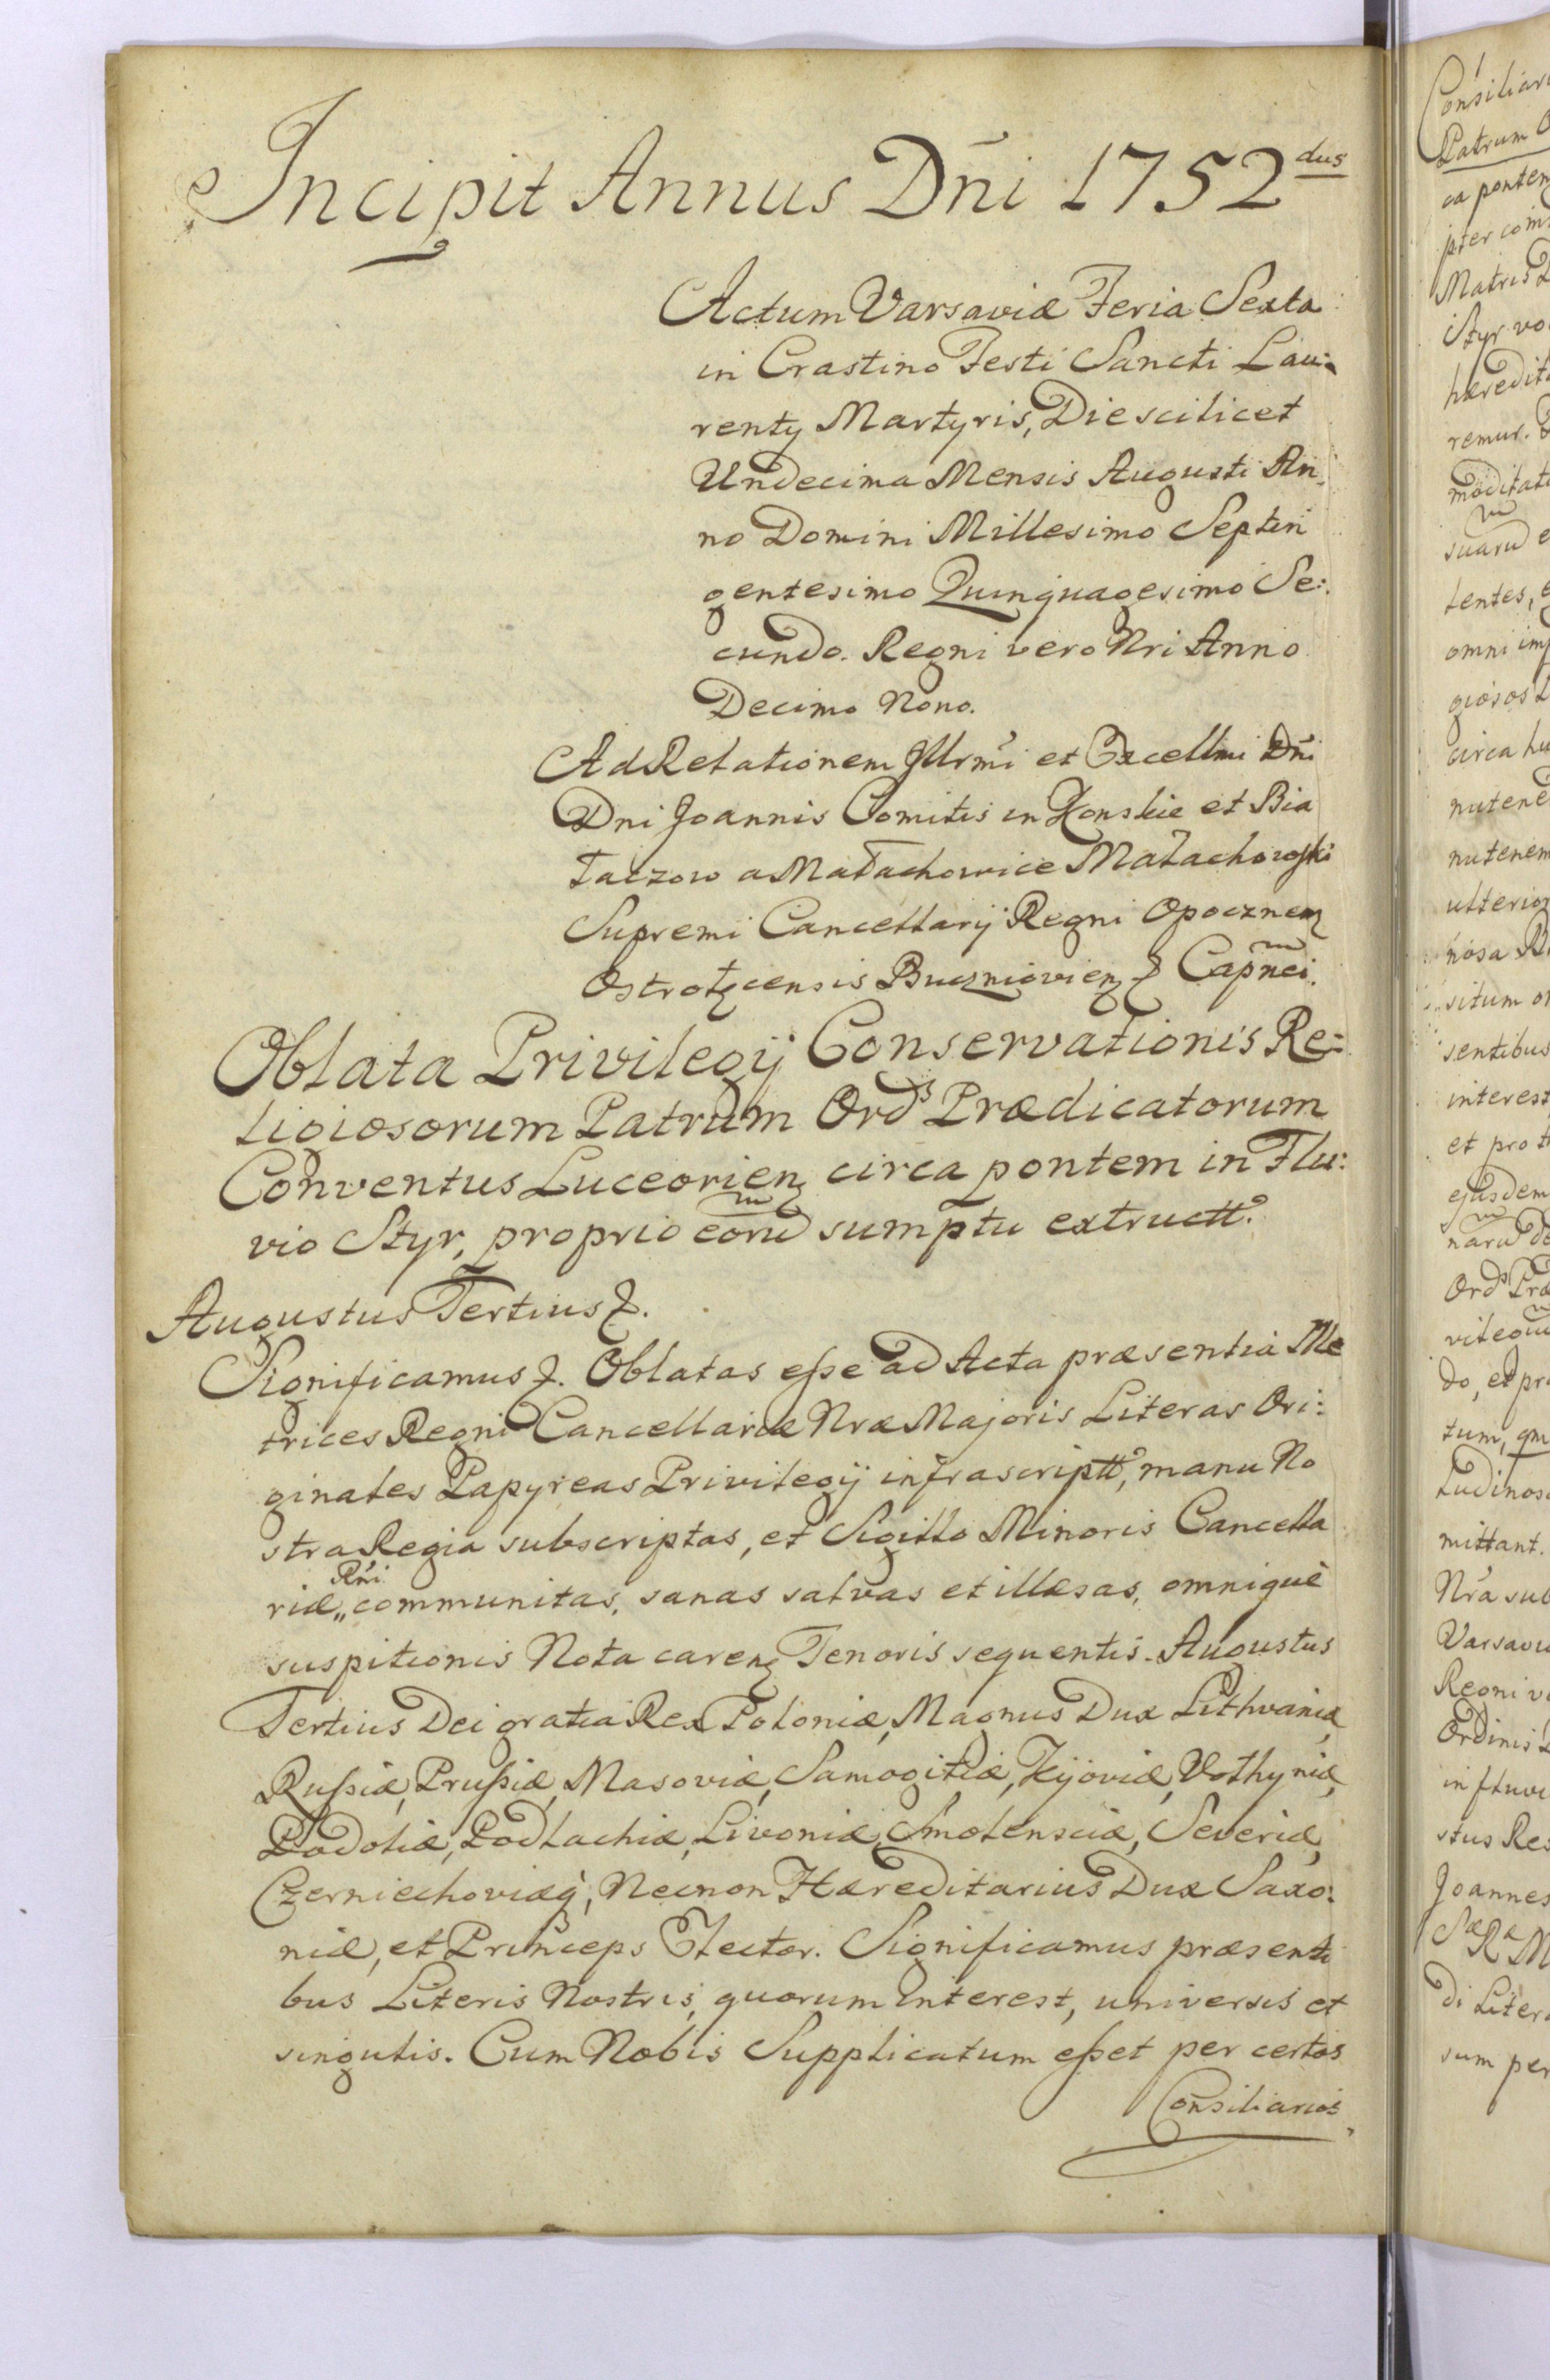 Incipit Annus Dñi 1752dus
Actum Varsaviæ Feria Sexta
in Crastino Festi Sancti Lau:
renty Martyris, Die scilicet
Undecima Mensis Augusti An
no Domini Millesimo Septin
gentesimo Quinquagesimo Se:
cundo. Regni vero Nri Anno
Decimo Nono.
Ad Relationem Illrmi et Excellmi Dñi
Dni Joannis Comitis in Konskie et Bia
łaczow a Małachowice Małachowski
Supremi Cancellarij Regni Opocznen
Ostrołęcensis Buczniovien & Capnei.
Oblata Privilegij Conservationis Re:
ligiosorum Patrum Ords Prædicatorum
Conventus Luceorien circa pontem in Flu:
vio Styr, proprio eoru sumptu extructt.
Augustus Tertius &.
Significamus &. Oblatas eſse ad Acta præsentia Me
trices Regni Cancellariæ Nræ Majoris Literas Ori:
ginales Papyreas Privilegij infrascriptt, manu No
stra Regia subscriptas, et Sigillo Minoris Cancella
riæ „ Rñi communitas, sanas salvas et illæsas, omnique
suspitionis Nota caren Tenoris sequentis. Augustus
Tertius Dei gratia Rex Poloniæ, Magnus Dux Lithvaniæ,
Ruſsiæ, Pruſsiæ, Masoviæ, Samogitiæ, Kijoviæ, Volhyniæ,
Podoliæ, Podlachiæ, Livoniæ, Smolensciæ, Severiæ,
Czerniechoviæq, Necnon Hæreditarius Dux Saxo:
niæ, et Princeps Elector. Significamus præsenti
bus Literis Nostris, quorum interest, universis et
singulis. Cum Nobis Supplicatum eſset per certos
Consiliarios
Consiliari
Patrum O
ca ponten
pter com
Matris
Styr vo
hæredit
remur.
moditat
suaru e
tentes, e
omni imp
giosos L
circa hu
nutene
nutenem
ulterio
nosa R
situm o
sentibus
interest
et pro t
ejusdem
naru de
Ords Præ
vilegiu
do, et pr
tum, qm
ludinos
mittant.
Nra sub
Varsavi
Regni v
Ordinis L
in fluvi
stus Rex
Joannes
Sæ Ra M
di Liter
sum per